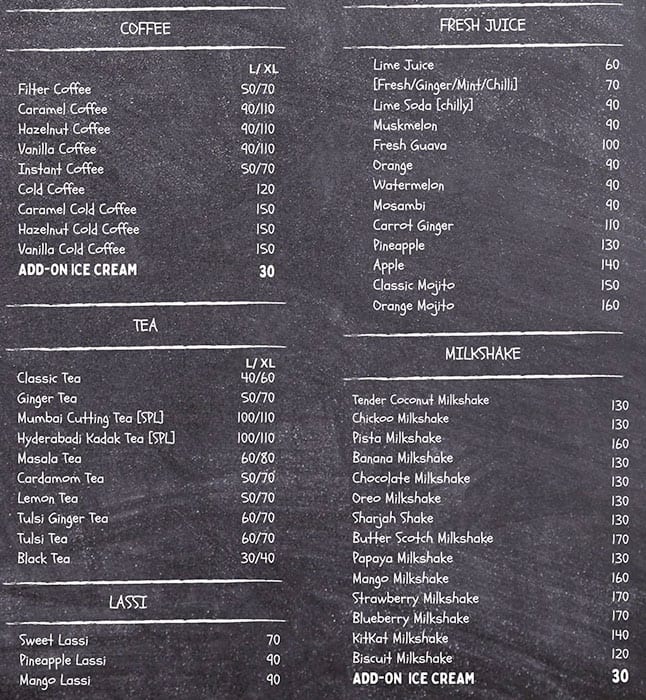 COFFEE
L/ XL
Filter Coffee 50/70
Caramel Coffee 90/110
Hazelnut Coffee 90/110
Vanilla Coffee 90/110
Instant Coffee 50/70
Cold Coffee 120
Caramel Cold Coffee 150
Hazelnut Cold Coffee 150
Vanilla Cold Coffee 150
ADD-ON ICE CREAM 30
TEA
L/ XL
Classic Tea 40/60
Ginger Tea 50/70
Mumbai Cutting Tea [SPL] 100/110
Hyderabadi Kadak Tea [SPL] 100/110
Masala Tea 60/80
Cardamom Tea 50/70
Lemon Tea 50/70
Tulsi Ginger Tea 60/70
Tulsi Tea 60/70
Black Tea 30/40
LASSI
Sweet Lassi 70
Pineapple Lassi 90
Mango Lassi 90
FRESH JUICE
Lime Juice 60
[Fresh/Ginger/Mint/Chilli] 70
Lime Soda [chilly] 90
Muskmelon 90
Fresh Guava 100
Orange 90
Watermelon 90
Mosambi 90
Carrot Ginger 110
Pineapple 130
Apple 140
Classic Mojito 150
Orange Mojito 160
MILKSHAKE
Tender Coconut Milkshake 130
Chickoo Milkshake 130
Pista Milkshake 160
Banana Milkshake 130
Chocolate Milkshake 130
Oreo Milkshake 130
Sharjah Shake 130
Butter Scotch Milkshake 170
Papaya Milkshake 130
Mango Milkshake 160
Strawberry Milkshake 170
Blueberry Milkshake 170
KitKat Milkshake 140
Biscuit Milkshake 120
ADD-ON ICE CREAM 30